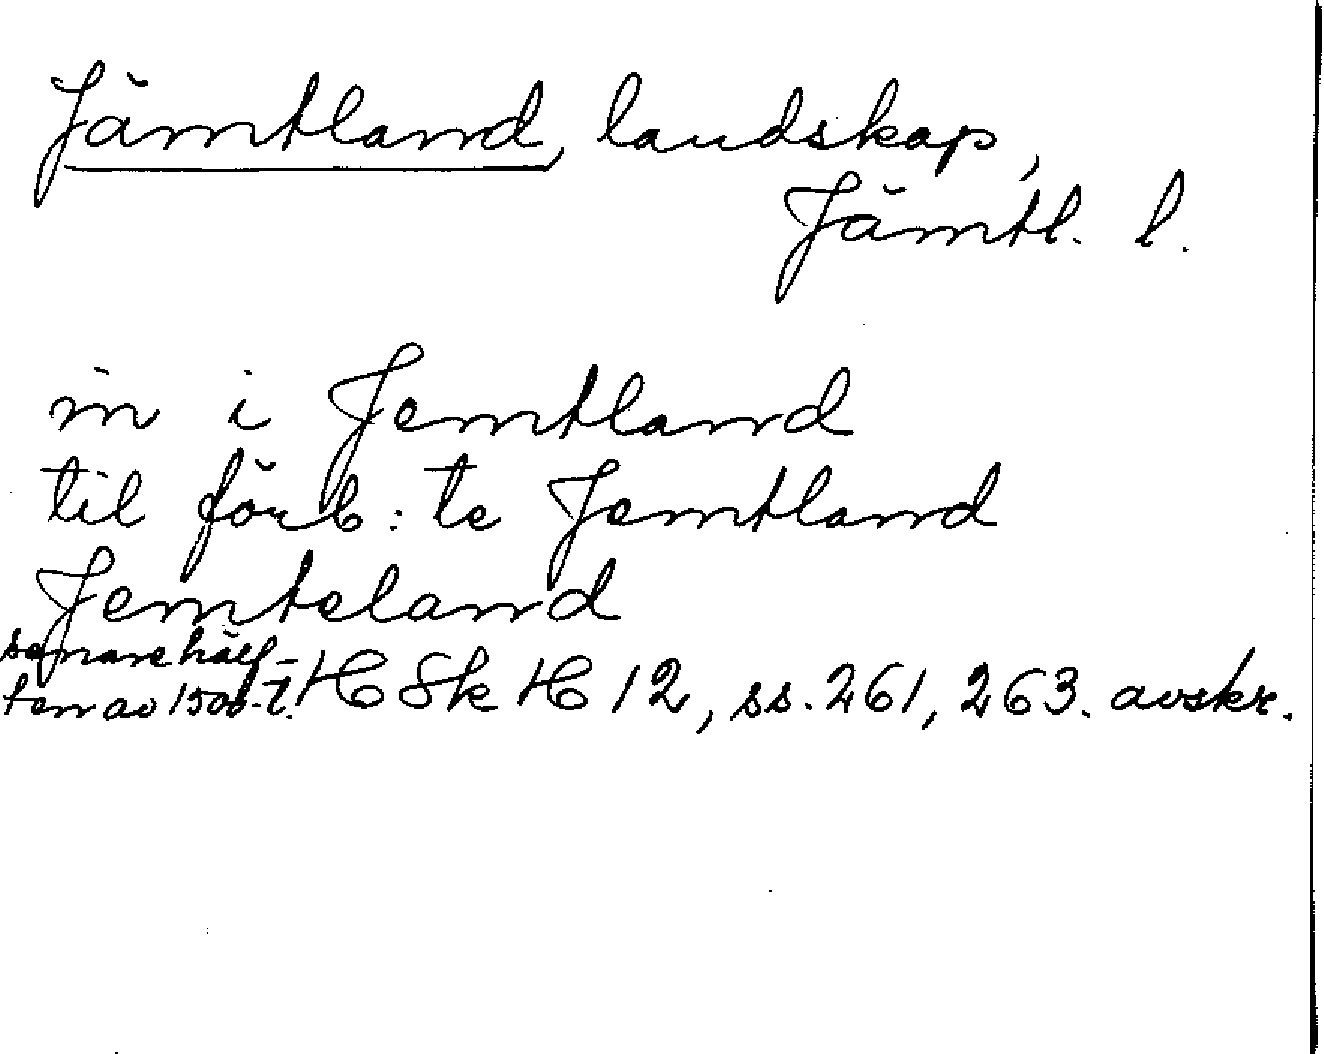 Jämtland, landskap,
Jämtl. l.
in i Jemtland
til förb:te Jemtland
Jemteland
senare hälf-
ten av 1500-t. H Sk H 12, ss. 261, 263. avskr.